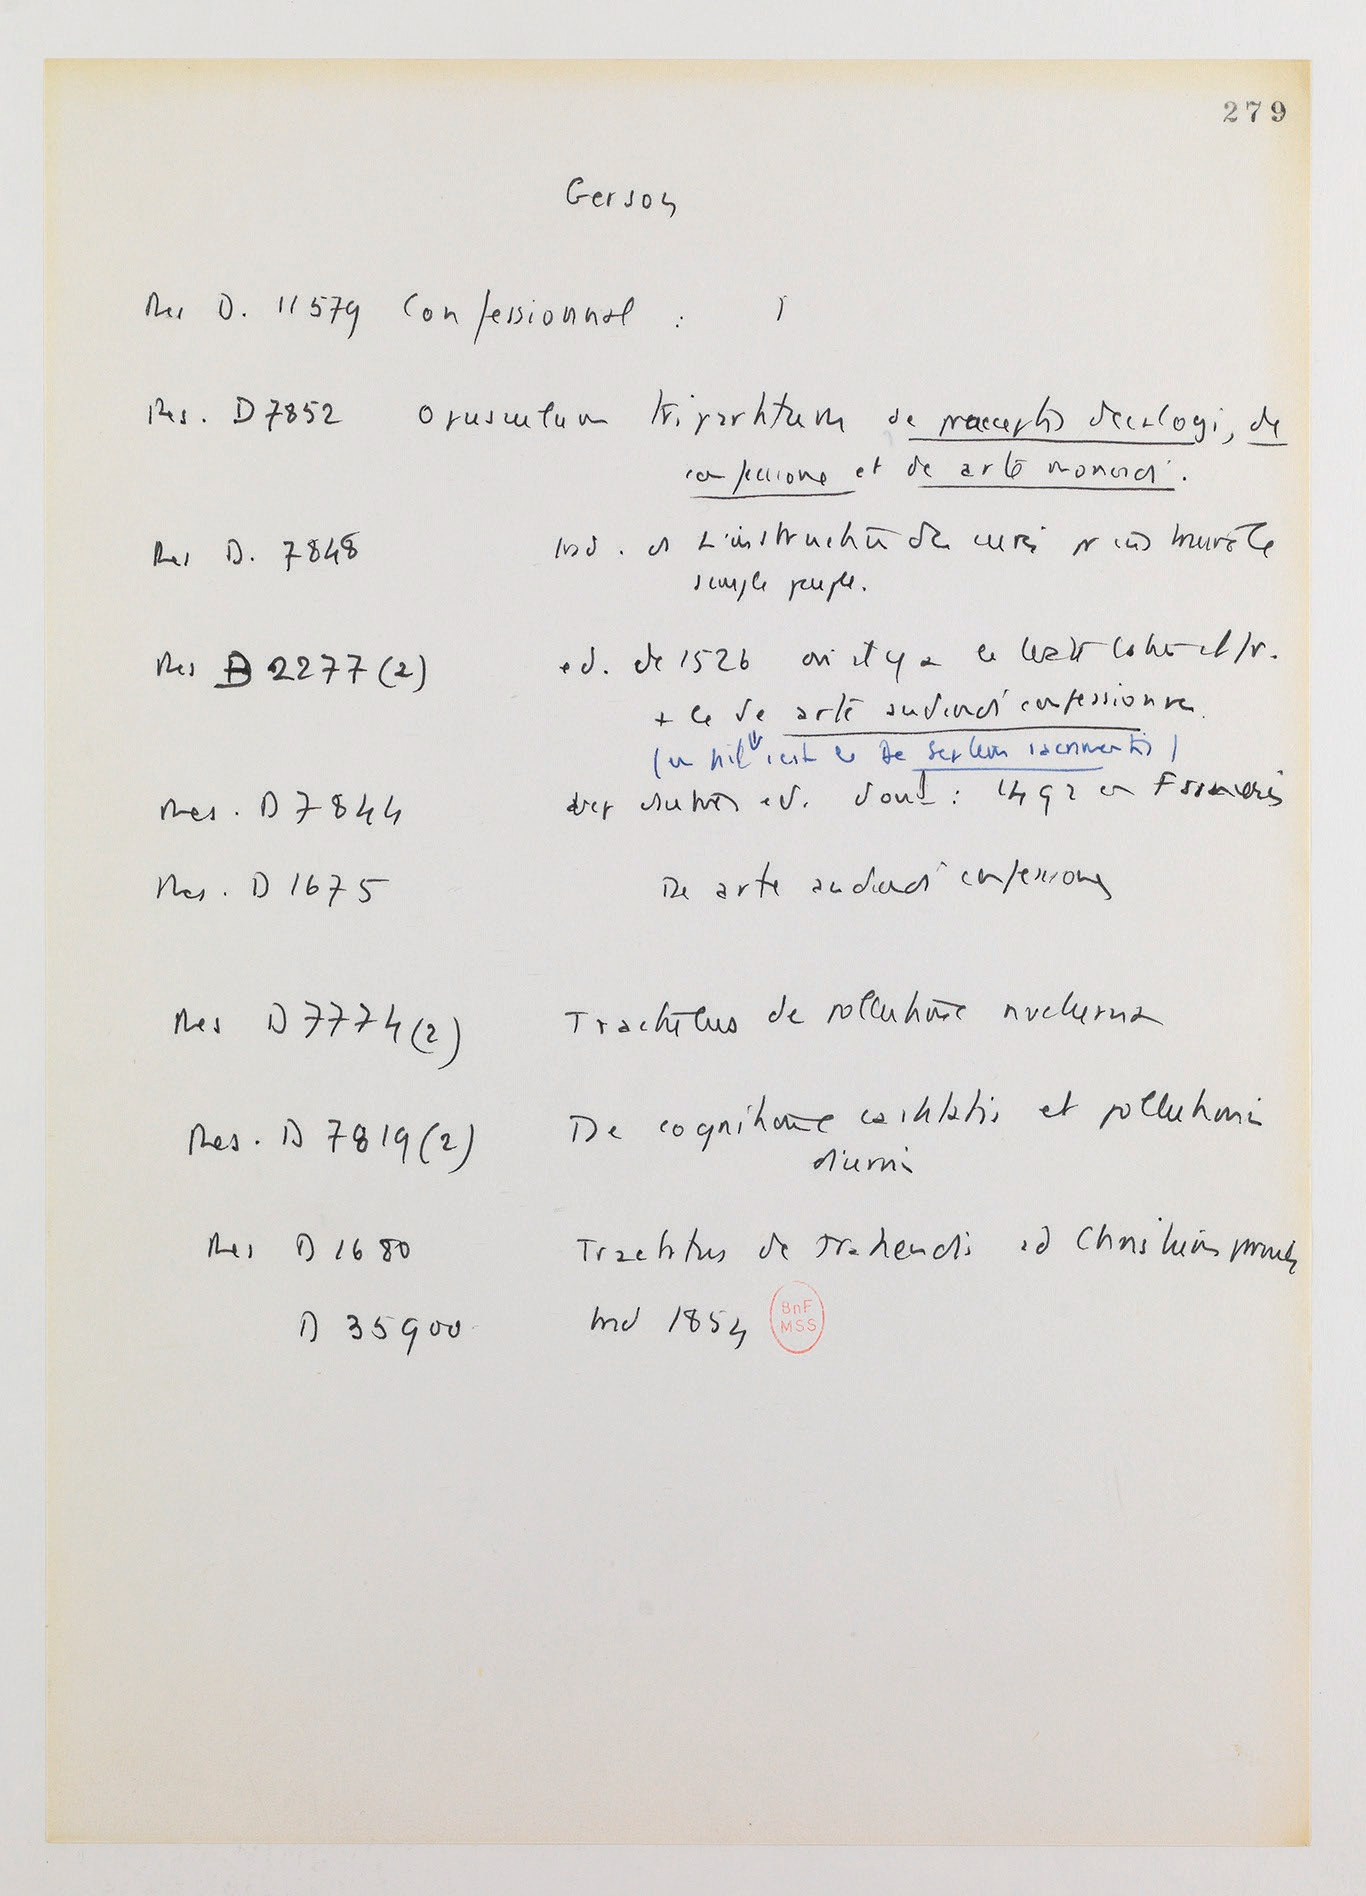 279
Gerson
Res D. 11579 Confessionnal :
Res. D 7852 Opusculum tripartitum de praeceptis decalogi, de
confessione et de arte moriendi.
Res D. 7848 trad. L'instruction des curés pr instruire le
simple peuple.
Res D 2277 (2) ed. de 1526 où il y a le texte latin et fr.
+ le de arte audiendi confessiones.
( c'est le De septem sacramentis )
Res. D 7844 autres ed. dont : 1492 en
Res. D 1675 De arte audiendi confessiones
Res D 7774 (2) Tractatus de pollutione nocturna
Res. D 7819 (2) De cognitione castitatis et pollutionis
diurnis
Res D 1680 Tractatus de trahendis ad Christum parvulis
D 35900 trad 1854
BnF
MSS